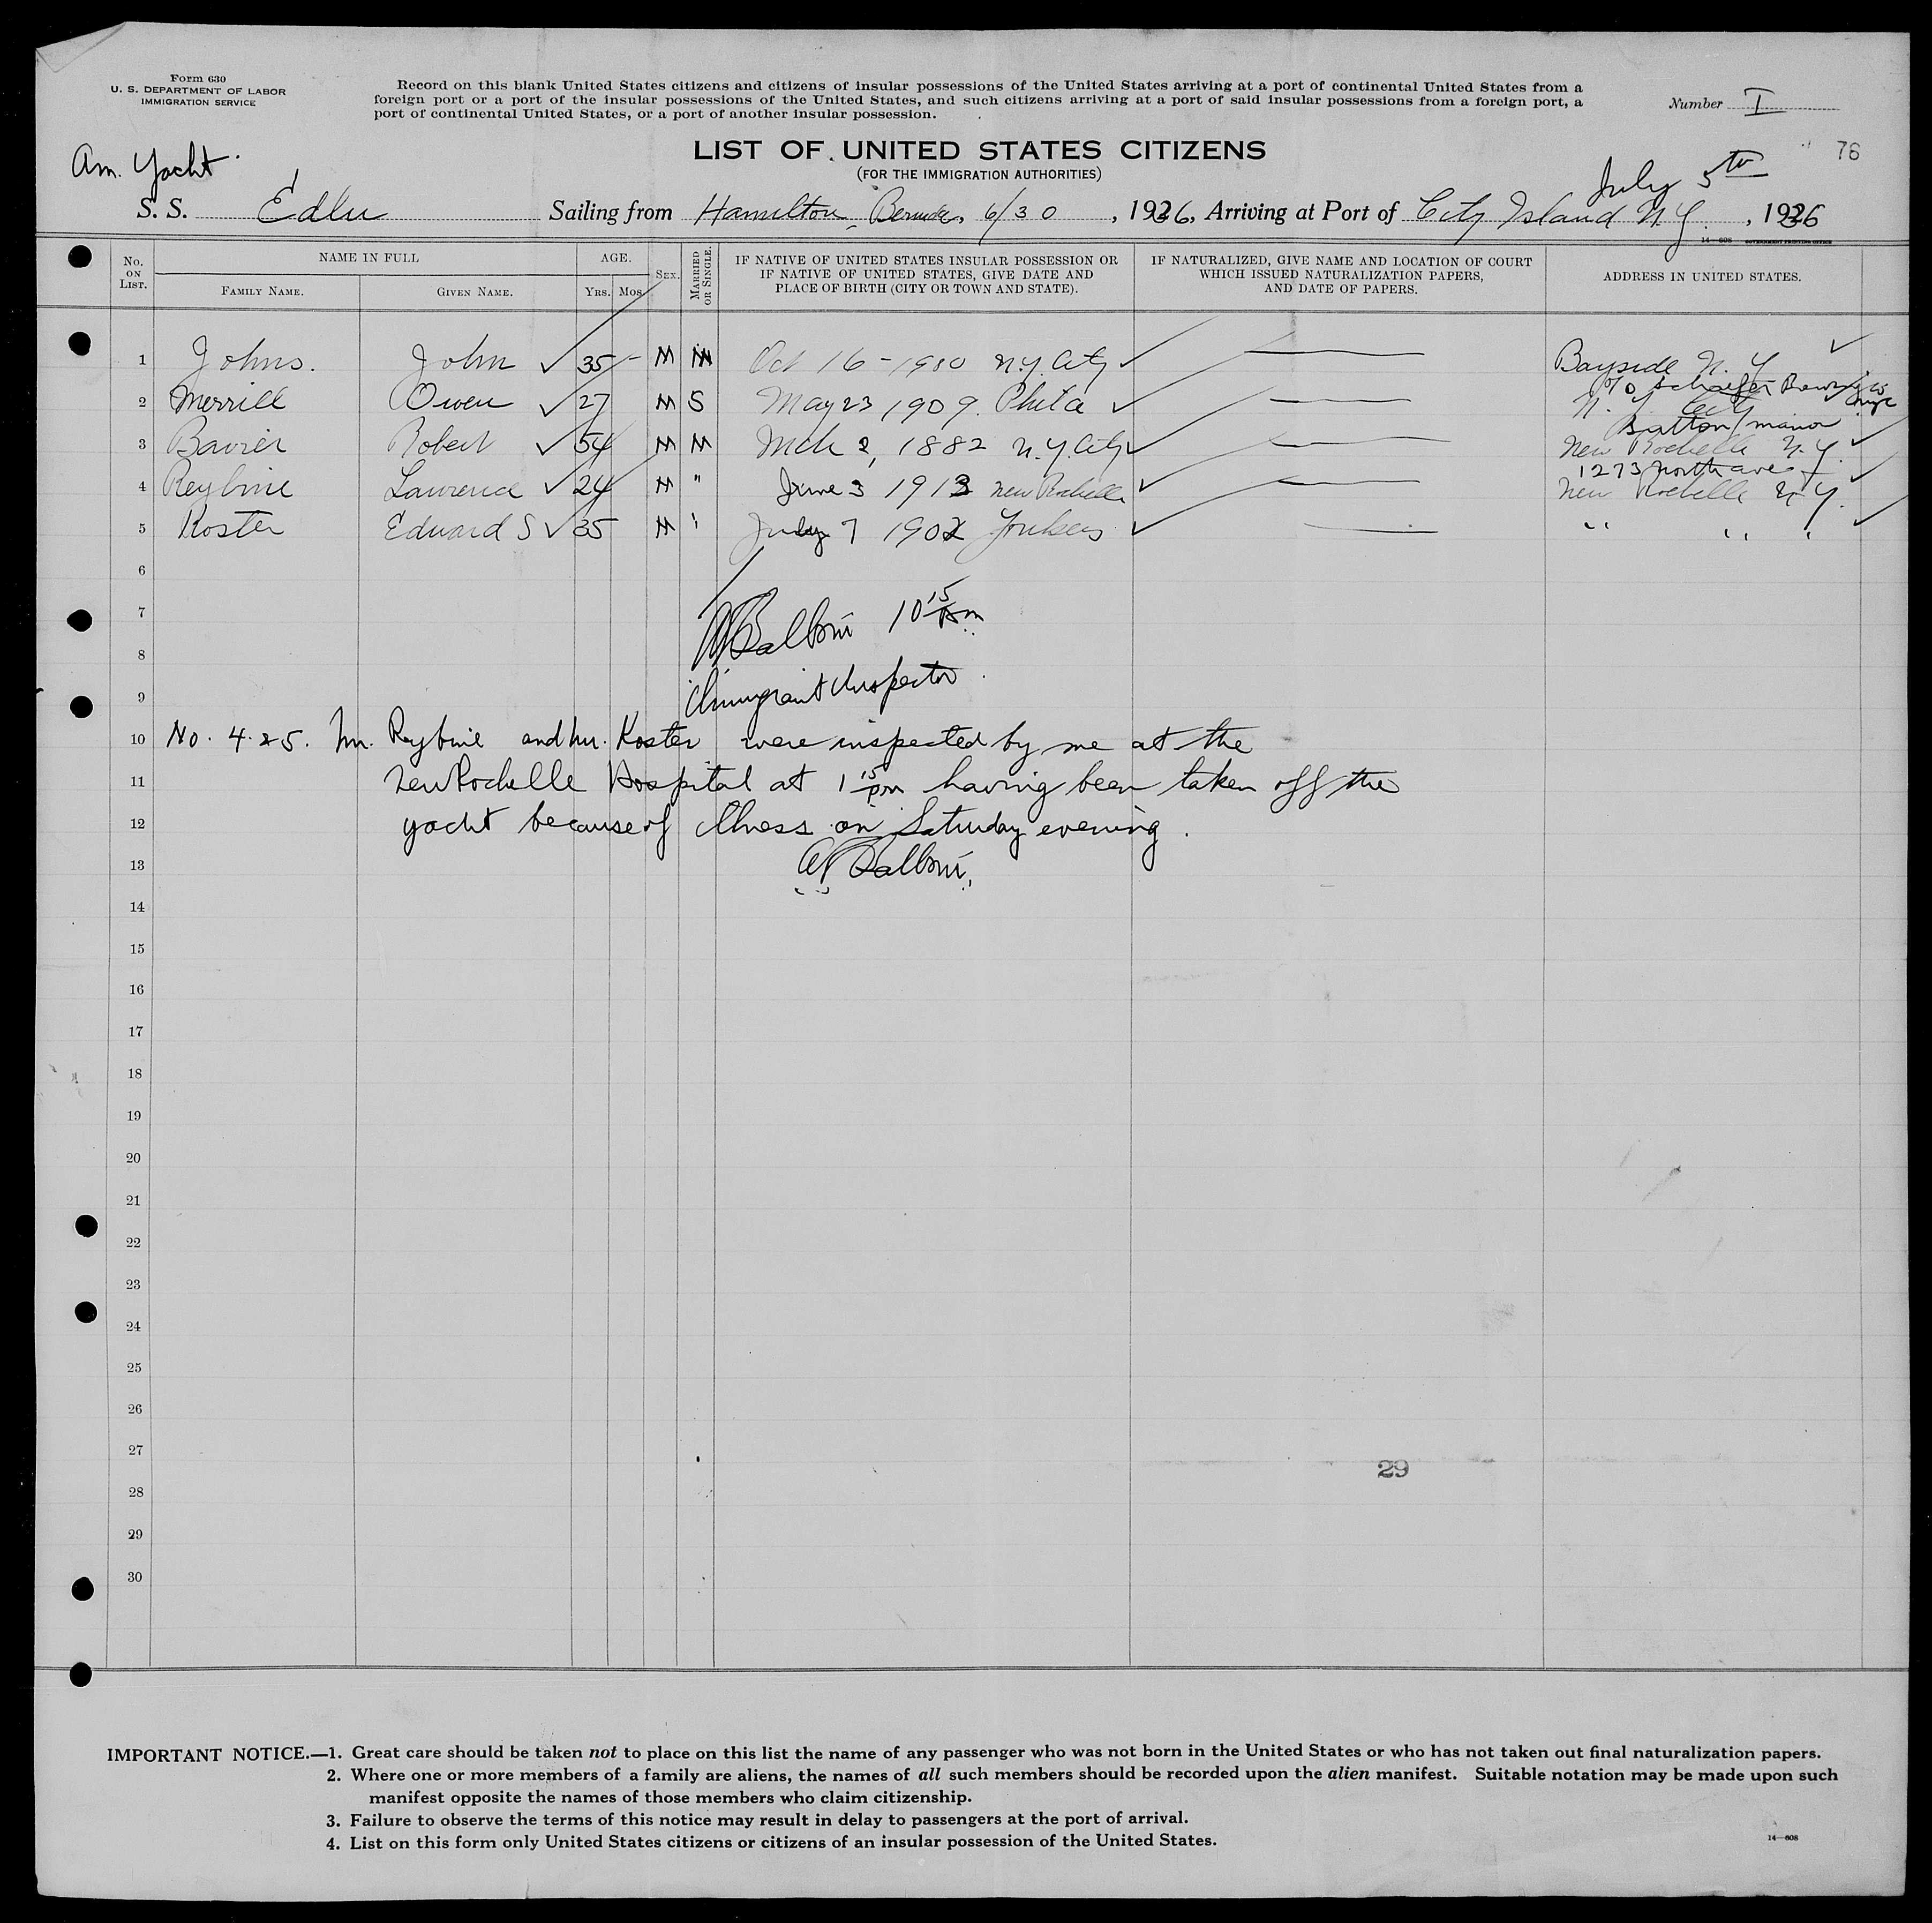 Form 630
U. S. DEPARTMENT OF LABOR
IMMIGRATION SERVICE
Record on this blank United States citizens and citizens of insular possessions of the United States arriving at a port of continental United States from a
foreign port or a port of the insular possessions of the United States, and such citizens arriving at a port of said insular possessions from a foreign port, a
port of continental United States, or a port of another insular possession.
Number I
76
LIST OF UNITED STATES CITIZENS
(FOR THE IMMIGRATION AUTHORITIES)
Am. Yacht
July 5th
S. S. Edlu Sailing from Hamilton, Bermuda, 6/30, 1936, Arriving at Port of City Island N.Y., 1936
14—608 GOVERNMENT PRINTING OFFICE
No. ON LIST. NAME IN FULL FAMILY NAME. GIVEN NAME. AGE. YRS. MOS. SEX. MARRIED OR SINGLE. IF NATIVE OF UNITED STATES INSULAR POSSESSION OR IF NATIVE OF UNITED STATES, GIVE DATE AND PLACE OF BIRTH (CITY OR TOWN AND STATE). IF NATURALIZED, GIVE NAME AND LOCATION OF COURT WHICH ISSUED NATURALIZATION PAPERS, AND DATE OF PAPERS. ADDRESS IN UNITED STATES.
1 Johns. John ✓ 35 – M M Oct 16 – 1900 N.Y. City ✓ — Bayside N. Y ✓
2 Merrill Owen ✓ 27 M S May 23 1909. Phila ✓ — c/o Schaefer N. Y. City
3 Bavier Robert ✓ 54 M M Mch 2, 1882 N.Y. City ✓ — manor New Rochelle N.Y. ✓
4 Reybine Lawrence ✓ 24 M " June 3 1913 New Rochelle ✓ — 1273 North ave New Rochelle N.Y. ✓
5 Koster Edward S ✓ 35 M " July 7 1902 Yonkers ✓ — " " " ✓
6
7 10 15
8
9 Immigrant Inspector
10 No. 4 & 5. Mr. Reybine and Mr. Koster were inspected by me at the
11 New Rochelle Hospital at 1 15 pm having been taken off the
12 yacht because of illness on Saturday evening.
13
14
15
16
17
18
19
20
21
22
23
24
25
26
27
29
28
29
30
IMPORTANT NOTICE.—1. Great care should be taken not to place on this list the name of any passenger who was not born in the United States or who has not taken out final naturalization papers.
2. Where one or more members of a family are aliens, the names of all such members should be recorded upon the alien manifest. Suitable notation may be made upon such
manifest opposite the names of those members who claim citizenship.
3. Failure to observe the terms of this notice may result in delay to passengers at the port of arrival.
4. List on this form only United States citizens or citizens of an insular possession of the United States.
14—608